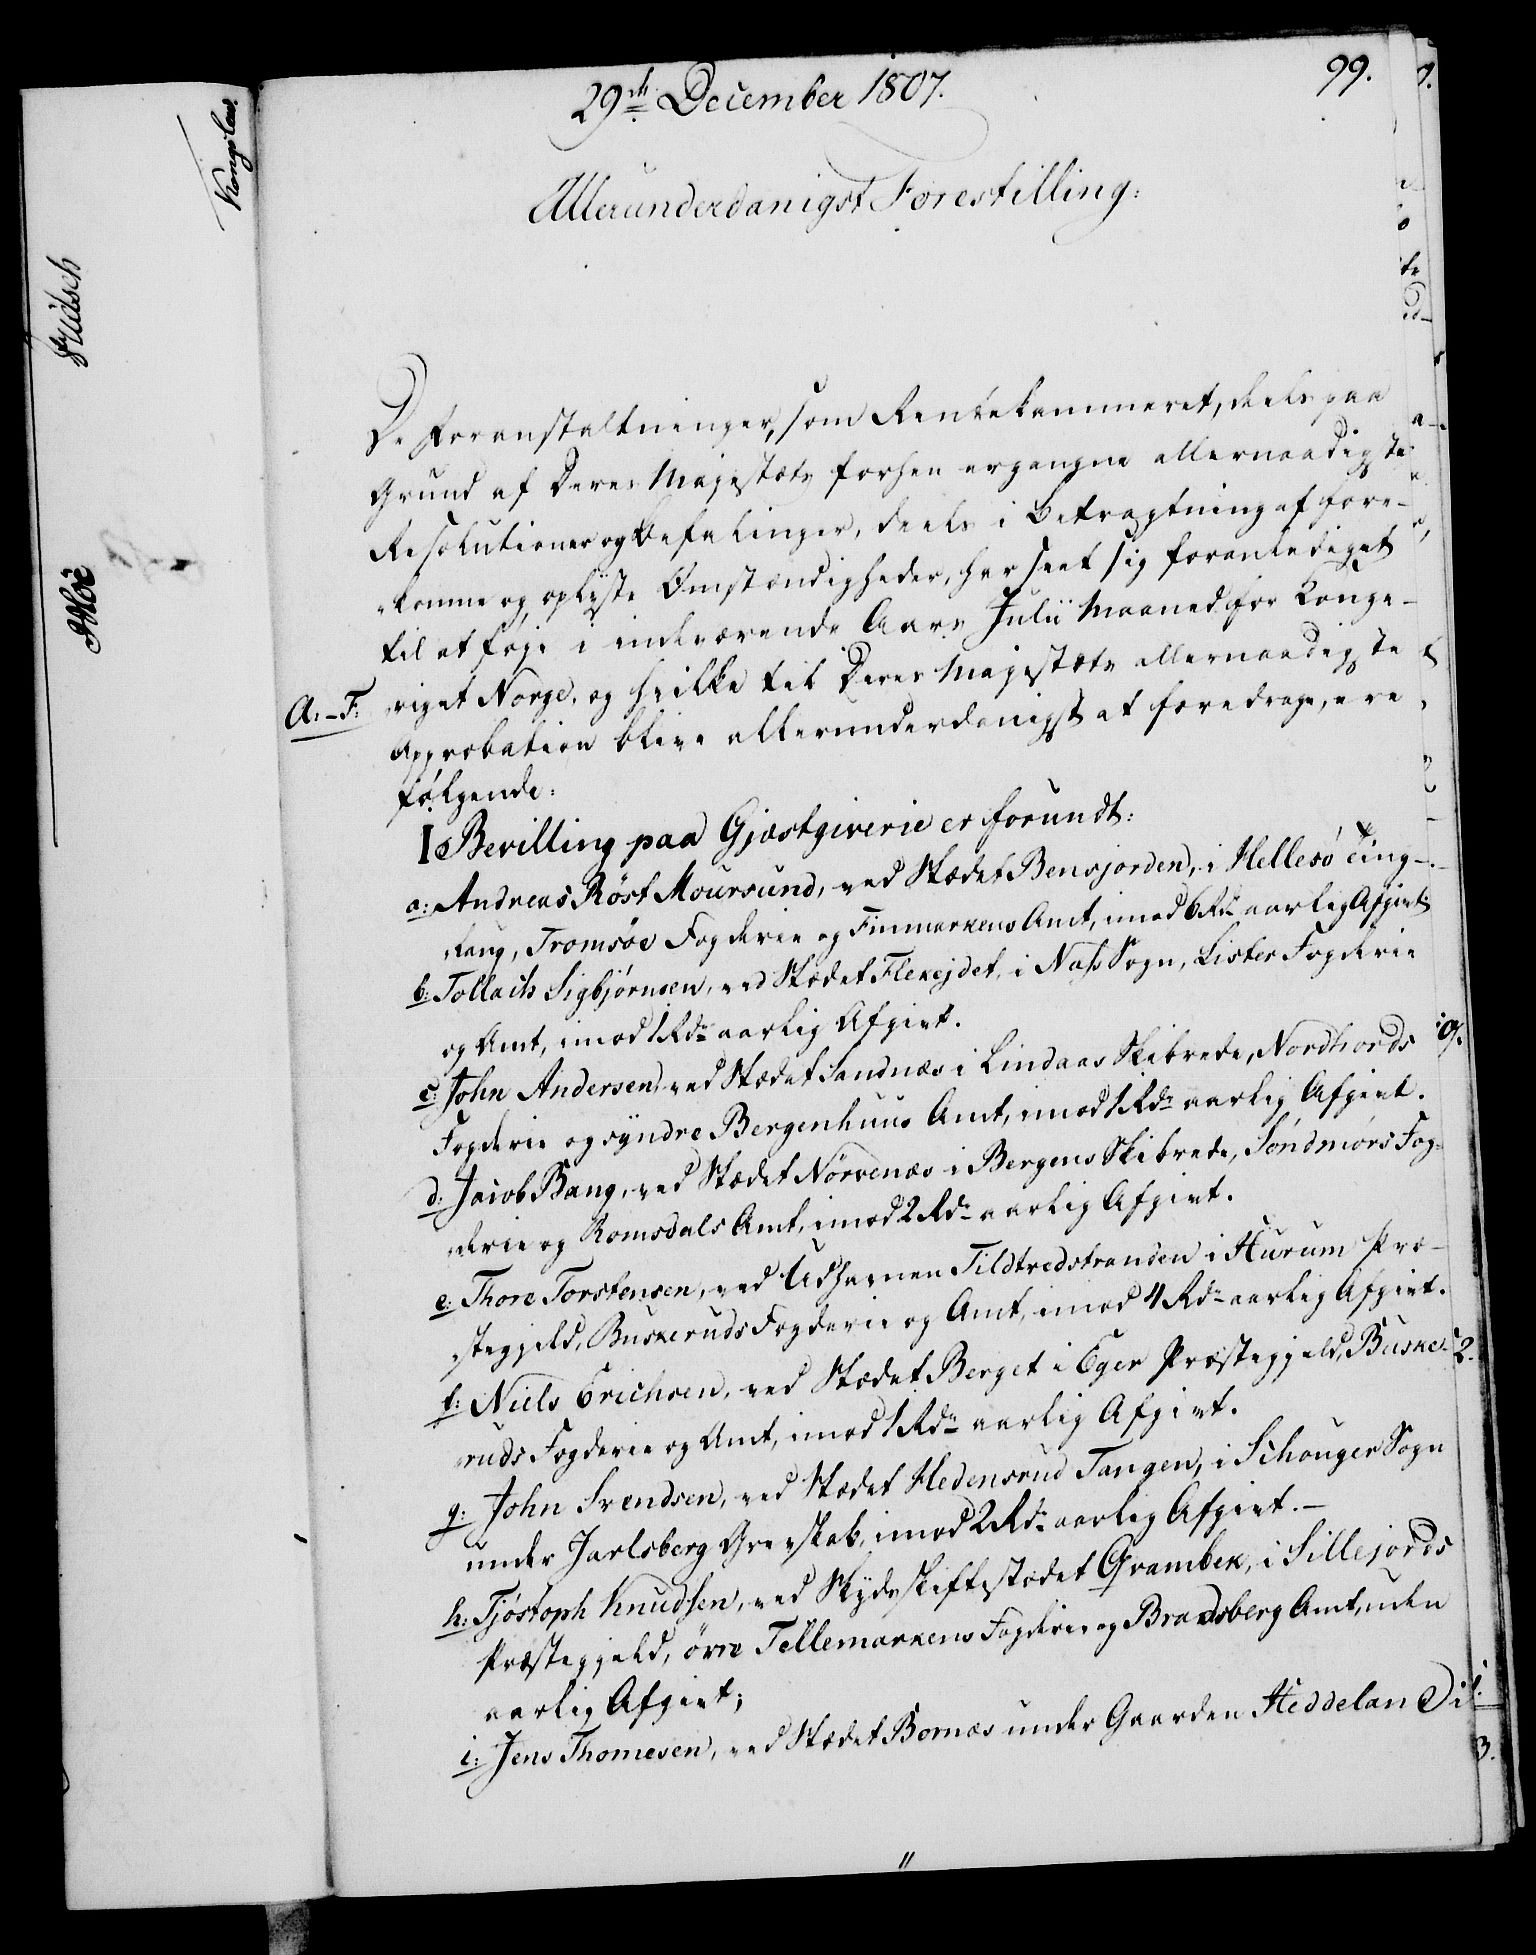 29de December 1807.
99.
Allerunderdanigst Forestilling:
De Foranstaltninger, som Rentekammeret, deels paa
Grund af Deres Majestæts forhen ergangne allernaadigste
Resolutioner og Befalinger, deels i Betragtning af fore-
komne og oplyste Omstændigheder, har seet sig foranlediget
til at føje i indeværende Aars Julii Maaned for Konge-
A:-F:
riget Norge, og hvilke til Deres Majestæts allernaadigste
Approbation blive allerunderdanigst at foredrage, ere
følgende:
I Bevilling paa Gjæstgiverie er forundt:
a: Andreas Röst Moursund, ved Stædet Bensjorden, i Hellesö Ting-
laug, Tromsöe Fogderie og Finmarkens Amt, imod 6 Rdr aarlig Afgivt
b: Tollach Sigbjörnsen, ved Stædet Flekejdet, i Nass Sogn, Lister Fogderie
og Amt, imod 1 Rdr aarlig Afgivt.
c: John Andersen, ved Stædet Sandnæs i Lindaas Skibrede, Nordhords
Fogderie og syndre Bergenhuus Amt, imod 1 Rdr aarlig Afgivt.
d: Jacob Bang, ved Stædet Nörvenæs i Bergens Skibrede, Söndmörs Fog-
derie og Romsdals Amt, imod 2 Rdr aarlig Afgivt.
e: Thore Torstensen, ved Udhavnen Tildtredstranden i Hurum Præ-
stegjeld, Buskeruds Fogderie og Amt, imod 4 Rdr aarlig Afgivt.
f: Niels Erichsen, ved Stædet Berget i Eger Præstegjeld, Buske-
ruds Fogderie og Amt, imod 1 Rdr aarlig Afgivt.
g: John Svendsen, ved Stædet Hedensrud Tangen, i Schouger Sogn
under Jarlsberg Grevskab, imod 2 Rdr aarlig Afgivt.-
h: Tjöstoph Knudsen, ved Skydsskiftestædet Qvambek, i Sillejords
Præstegjeld, övre Tellemarkens Fogderie og Bradsberg Amt, uden
aarlig Afgivt;
i: Jens Thomesen, ved Stædet Bornæs under Gaarden Heddeland i